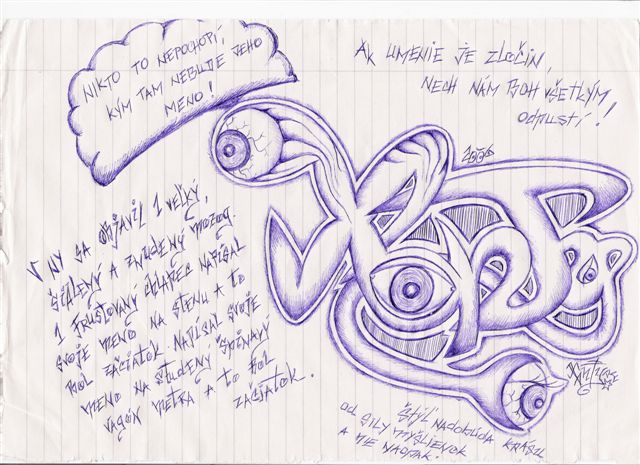 NIKTO TO NEPOCHOPÍ,
KÝM TAM NEBUDE JEHO
MENO!
AK UMENIE JE ZLOČIN,
NECH NÁM BOH VŠETKÝM
ODPUSTÍ!
V NY SA OBJAVIL 1 VEĽKÝ,
ŠIALENÝ A ZNUDENÝ MOZOG.
1 FRUSTOVANÝ CHLAPEC NAPÍSAL
SVOJE MENO NA STENU A TO
BOL ZAČIATOK NAPÍSAL SVOJE
MENO NA STUDENÝ ŠPINAVÝ
VAGÓN METRA A TO BOL
ZAČIATOK.
ŠTÝL NADOBÚDA KRÁSU
OD SILY MYŠLIENOK
A NIE NAOPAK.